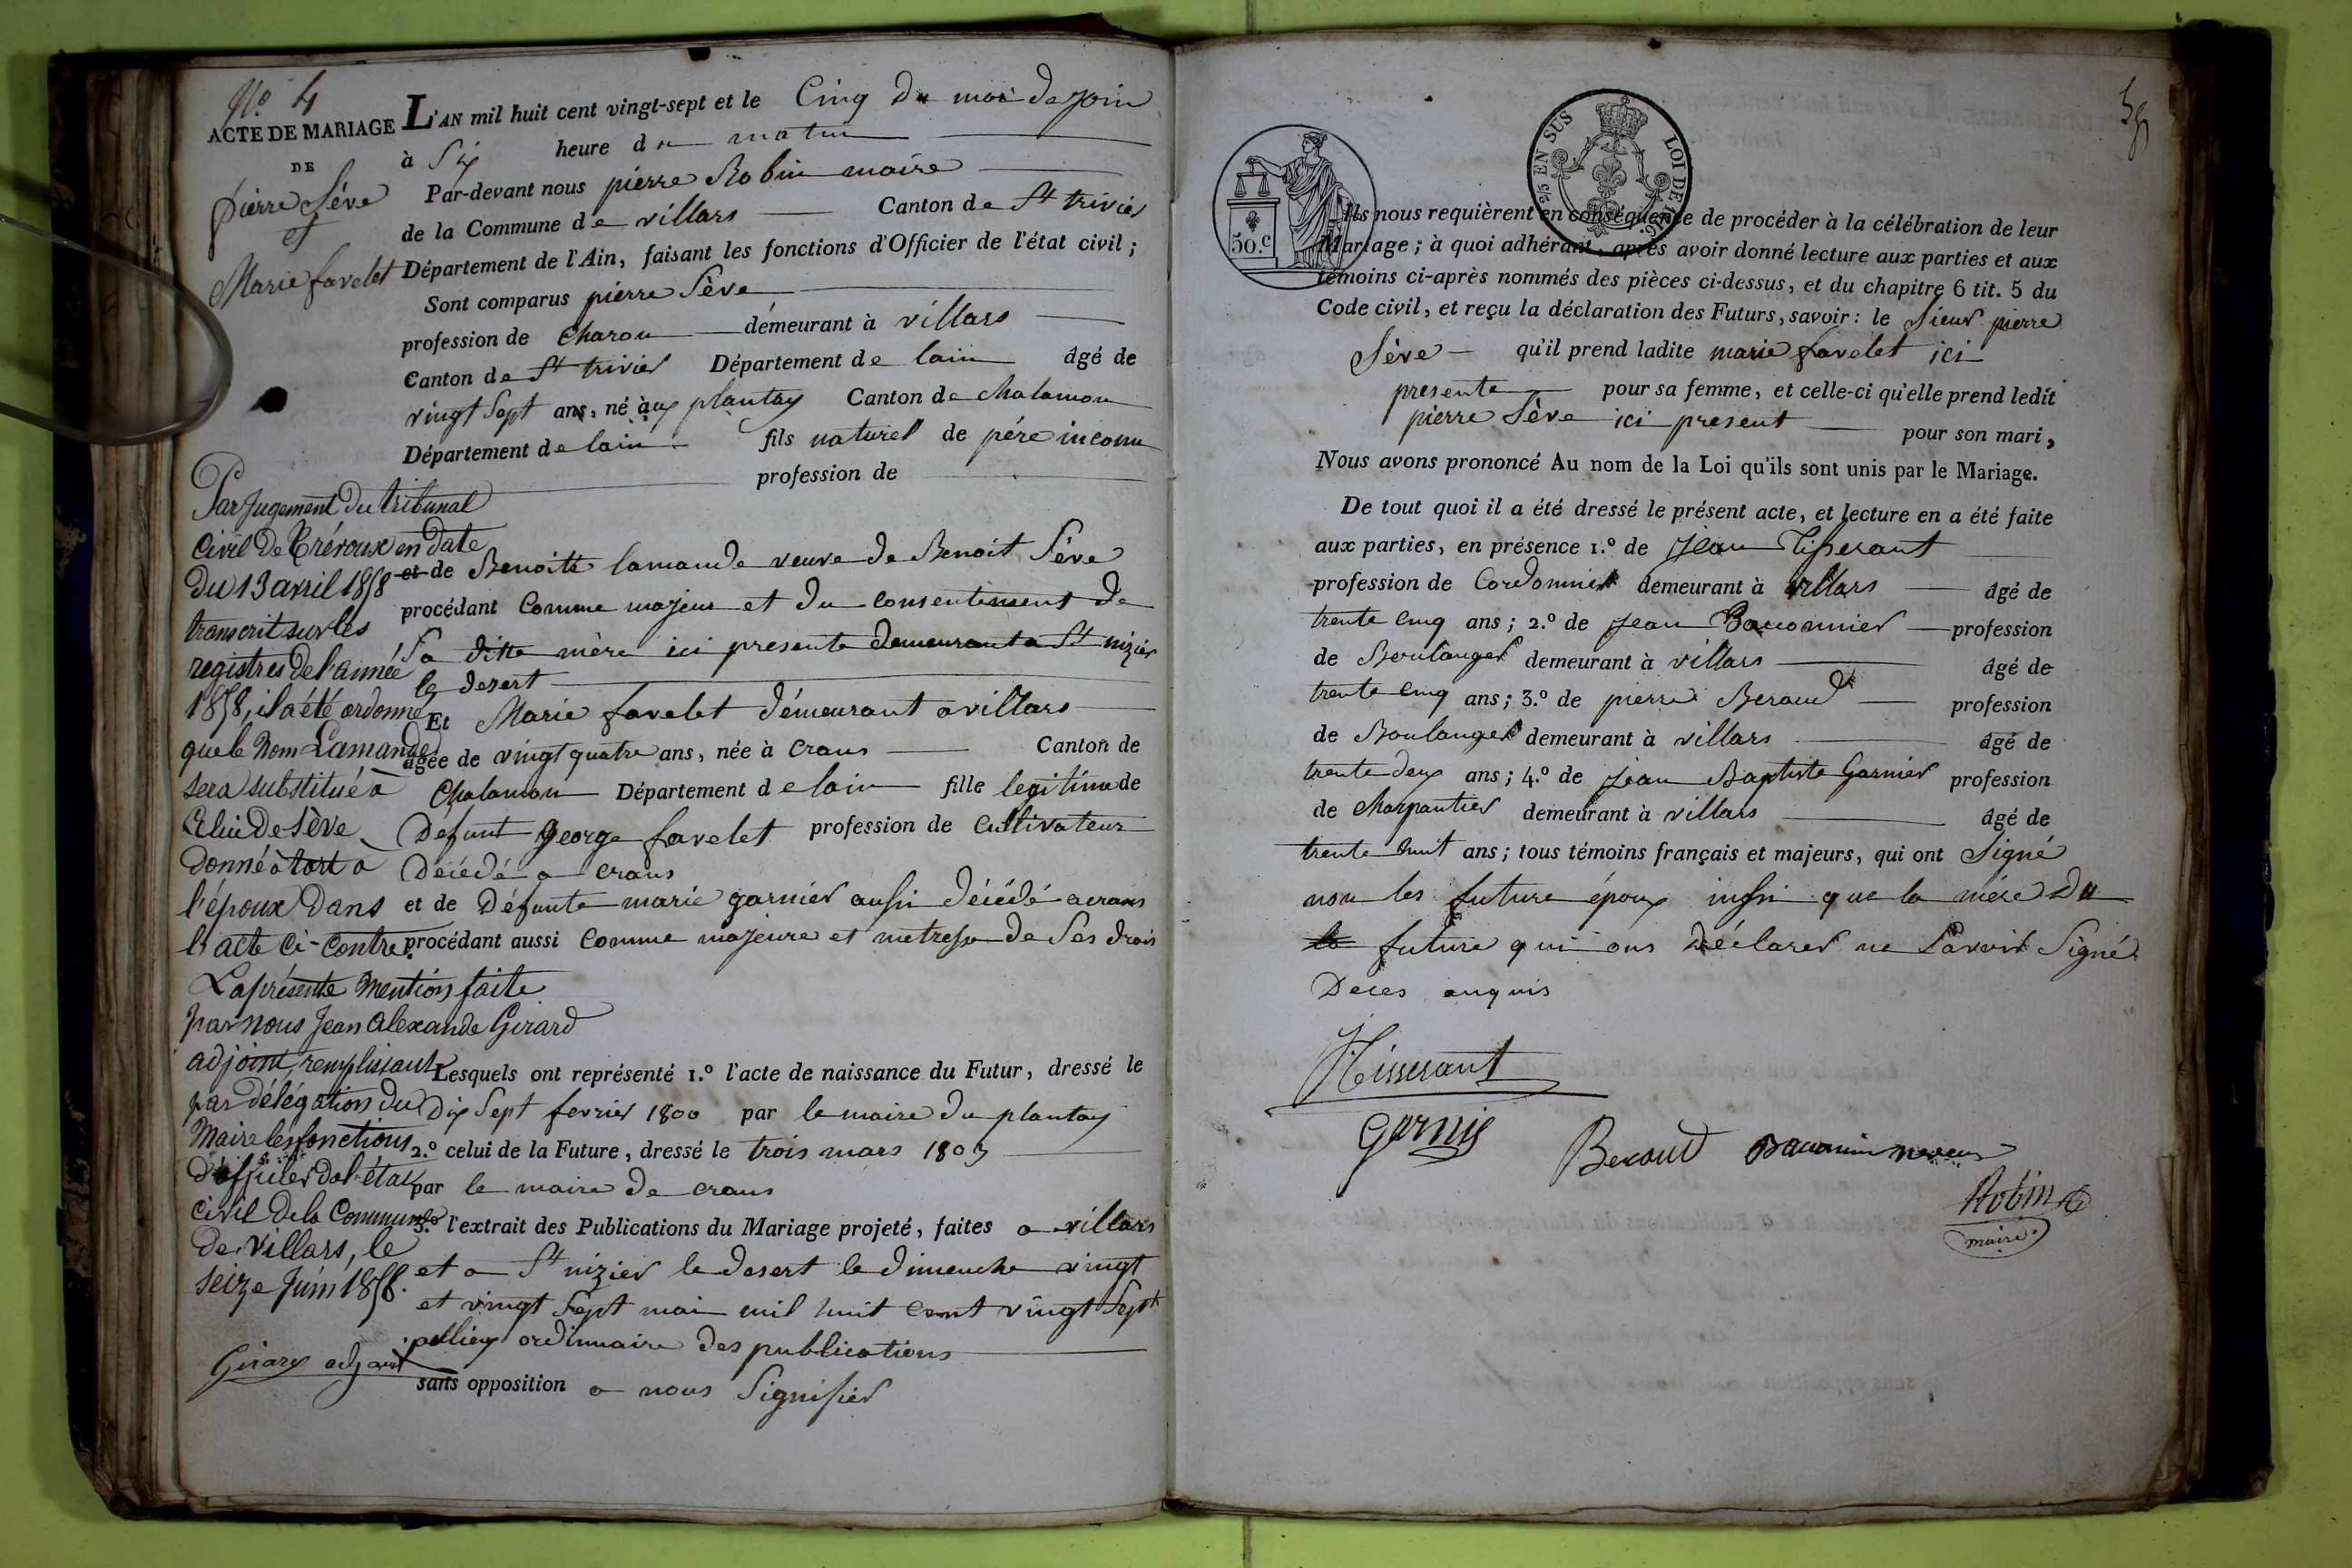 N.o 4
ACTE DE MARIAGE
DE
pierre Sève
et
Marie favelet
Par Jugement du tribunal
Civil de Trévoux en date
du 13 avril 1858
transcrit sur les
registres de l'année
1858, il a été ordonné
que le Nom Lamande
sera substitué à
Celui de Sève
donné à tort à
l'époux dans
l'acte ci-contre.
La présente Mention faite
par nous Jean Alexande Girard
adjoint, remplissant
par délégation du
Maire les fonctions
d'officier de l'état
Civil de la Commune
de Villars, le
seize Juin 1858.
Girard adjoint
L'AN mil huit cent vingt-sept et le Cinq du moi de join
à Six heure du matin
Par-devant nous pierre Robin maire
de la Commune de villars Canton de St trivier
Département de l'Ain, faisant les fonctions d'Officier de l'état civil ;
Sont comparus pierre Sève
profession de Charon demeurant à villars
Canton de St trivier Département de lain âgé de
vingt Sept ans, né aux plantay Canton de chalamon
Département de lain fils naturel de père inconu
profession de
et de Benoitte lamande veuve de Benoit Sève
procédant Comme majeur et du consentement de
Sa ditte mère ici presente demeurant a St nizier
le desert
Et Marie favelet démeurant a villars
âgée de vingt quatre ans, née à Crans Canton de
Chalamon Département de lain fille legitime de
Défunt george favelet profession de Cultivateur
Décédé a crans
et de Défunte marie garnier aussi décédé a crans
procédant aussi Comme majeure et metresse de Ses drois
Lesquels ont représenté 1.o l'acte de naissance du Futur, dressé le
Dix Sept fevrier 1800 par le maire du plantay
2.o celui de la Future, dressé le trois mars 1803
par le maire de crans
3.o l'extrait des Publications du Mariage projeté, faites a villars
et a St nizier le desert le dimenche vingt
et vingt Sept mai mil huit cent vingt Sept
ordinnaire des publications
sans opposition a nous Signifier
59
2/5 EN SUS LOI DE 1816.
50.c
Ils nous requièrent en conséquence de procéder à la célébration de leur
Mariage ; à quoi adhérant, après avoir donné lecture aux parties et aux
témoins ci-après nommés des pièces ci-dessus, et du chapitre 6 tit. 5 du
Code civil, et reçu la déclaration des Futurs, savoir : le Sieur pierre
Sève qu'il prend ladite marie favelet ici
presente pour sa femme, et celle-ci qu'elle prend ledit
pierre Sève ici present pour son mari,
Nous avons prononcé Au nom de la Loi qu'ils sont unis par le Mariage.
De tout quoi il a été dressé le présent acte, et lecture en a été faite
aux parties, en présence 1.o de Jean Tisserant
profession de Cordonnier demeurant à villars âgé de
trente cinq ans ; 2.o de Jean Bauonnier profession
de Boulanger demeurant à villars âgé de
trente cinq ans ; 3.o de pierre Beraud profession
de Boulanger demeurant à villars âgé de
trente deux ans ; 4.o de Jean Baptiste Garnier profession
de Charpantier demeurant à villars âgé de
trente huit ans ; tous témoins français et majeurs, qui ont Signé
non les future époux inssi que la mére du
la future qui ons déclarer ne Savoir Signé
Deces anquis
Tisserant
Garnie
Beraud
Robin
maire.